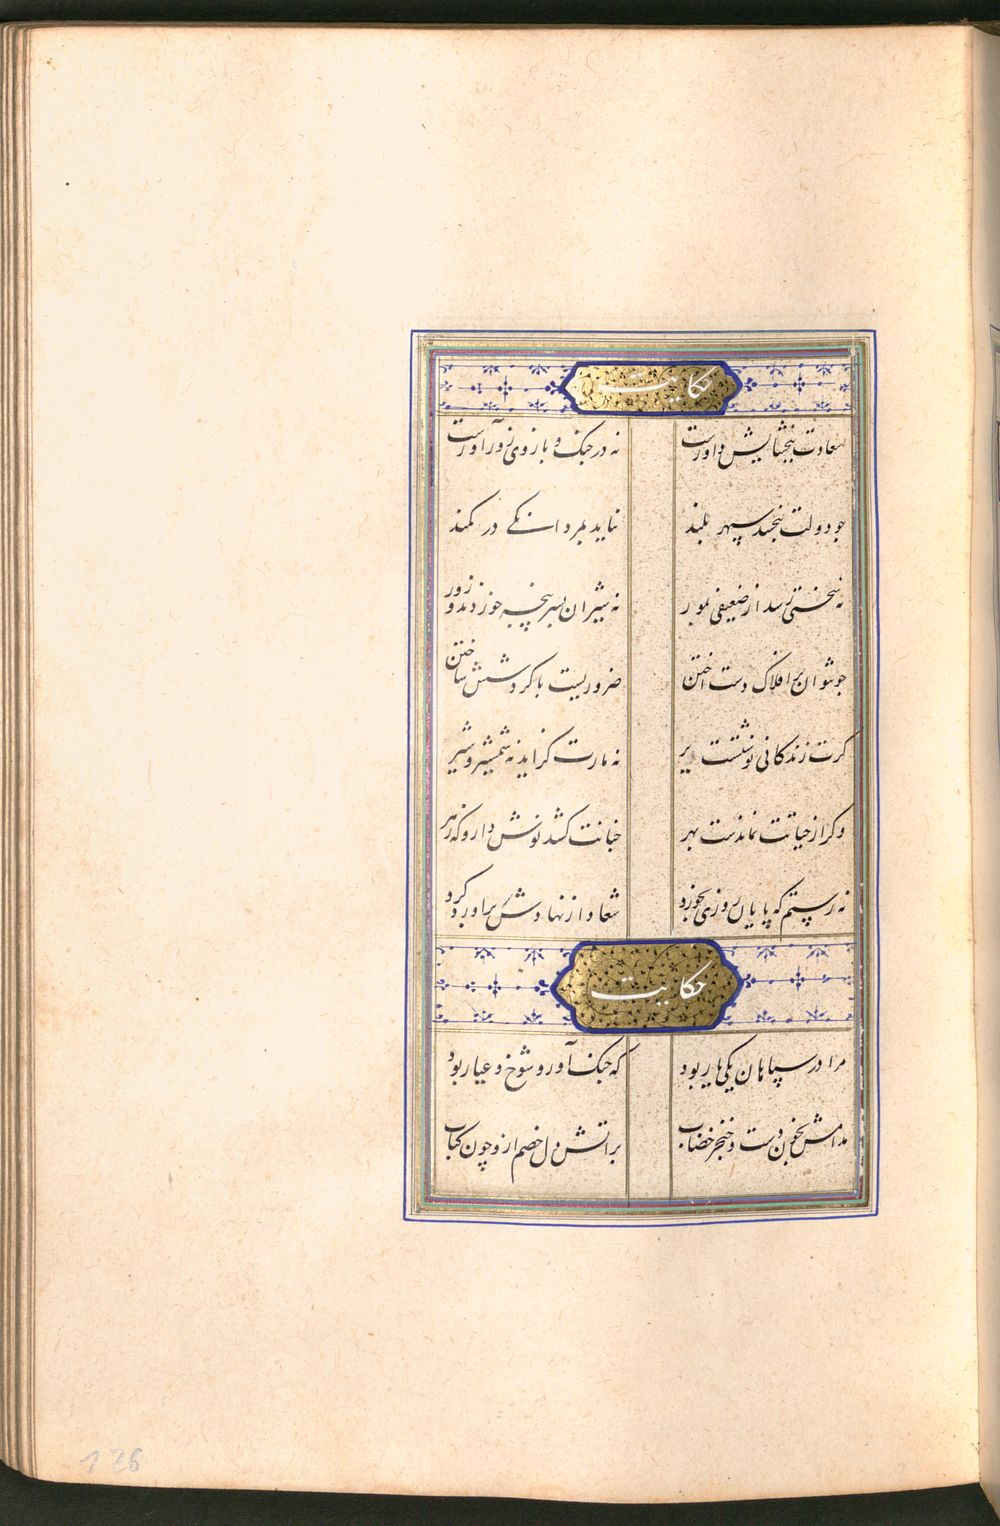 حکایت
سعادت ببخشایش داورست نه در جنک و بازوی زورآورست
جو دولت نبخشد سپهر بلند نیاید بمردانکی در کمند
نه سختی رسد از ضعیفی بمور نه شیران بسرپنجه خوردند و زور
جو نتوان بر افلاک دست آختن ضروریست با کردشش ساختن
کرت زندکانی نوشتست دیر نه مارت کزاید نه شمشیر و شیر
وکر از حیاتت نماندست بهر جنانت کشد نوش دارو که زهر
نه رستم که پایان روزی بخورد شغاد از نهادش براورد کرد
حکایت
مرا در سپاهان یکی یار بود که جنک آور و شوخ و عیار بود
مدامش بخون دست و خنجر خضاب بر اتش دل خصم ازو چون کباب
126